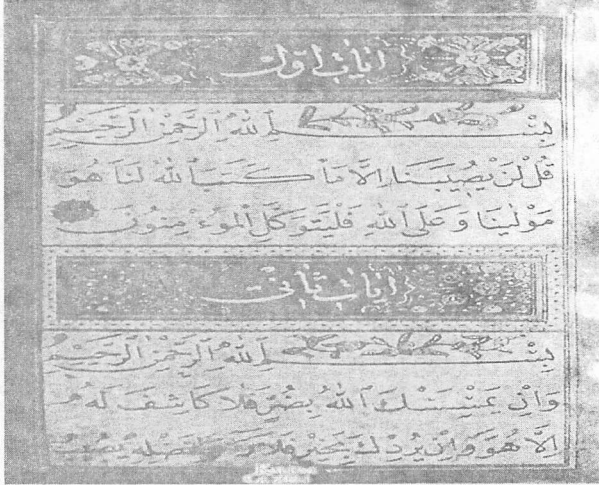 آيات اول
بِسْمِ ٱللهِ ٱلرَّحْمٰنِ ٱلرَّحِيْمِ
قُلْ لَنْ يُصِيبَنَا اِلَّا مَا كَتَبَ ٱللهُ لَنَا هُوَ
مَوْلٰينَا وَعَلَى ٱللهِ فَلْيَتَوَكَّلِ ٱلْمُؤْمِنُونَ
آيات ثانى
بِسْمِ ٱللهِ ٱلرَّحْمٰنِ ٱلرَّحِيْمِ
وَاِنْ يَمْسَسْكَ ٱللهُ بِضُرٍّ فَلَا كَاشِفَ لَهُ
اِلَّا هُوَ وَاِنْ يُرِدْكَ بِخَيْرٍ فَلَا لِفَضْلِهِ